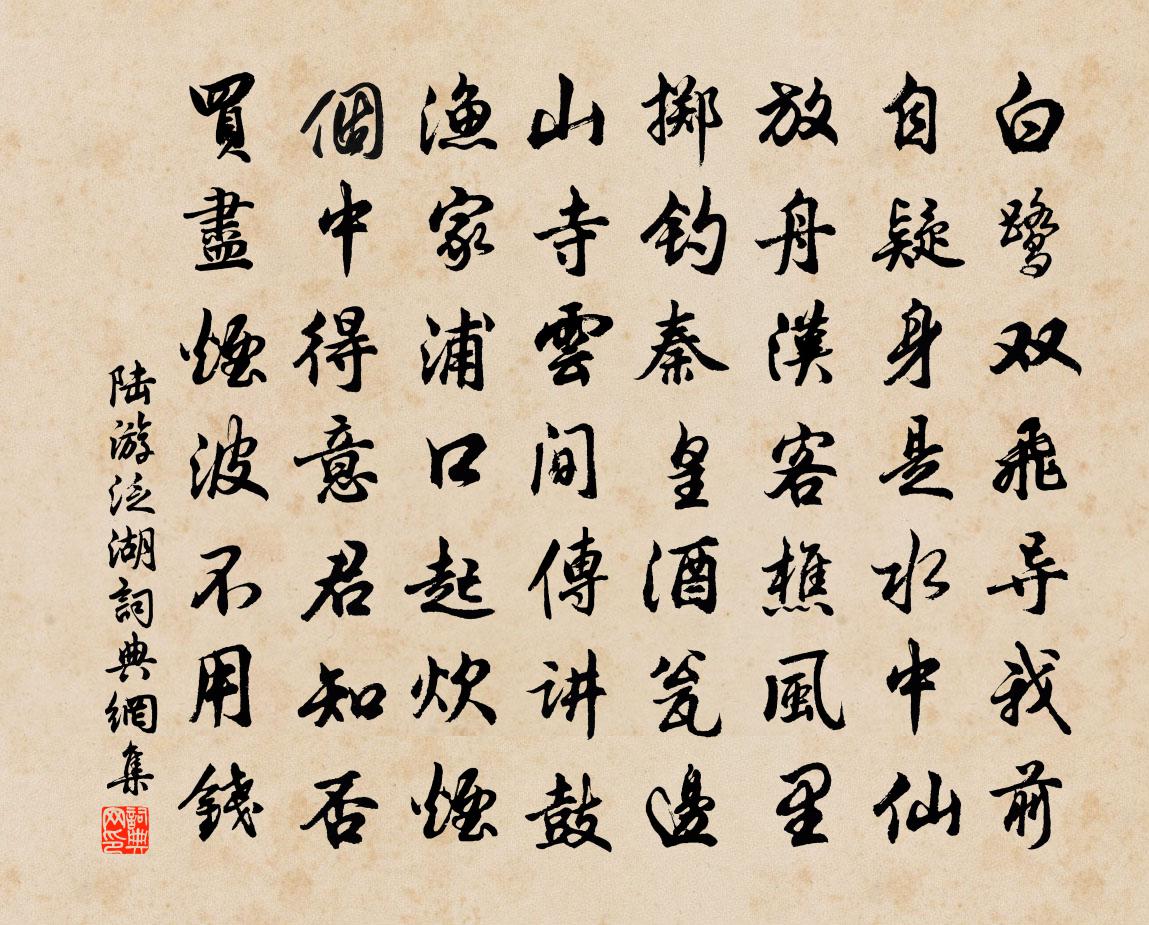 白鹭双飞导我前
自疑身是水中仙
放舟漢客樵風里
掷钓秦皇酒瓮邊
山寺雲間傳讲鼓
漁家浦口起炊煙
個中得意君知否
買盡煙波不用錢
陆游泛湖詞典網集
詞典網印